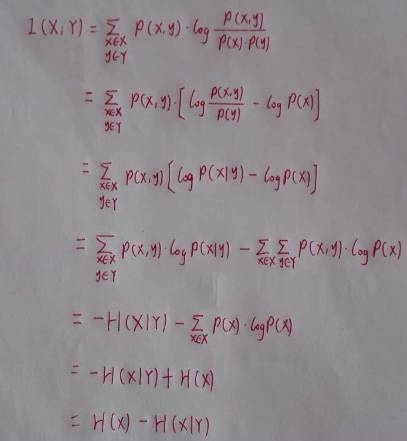 I(X;Y) = ∑_{x∈X y∈Y} P(x,y) · log P(x,y) / P(x)·P(y)
= ∑_{x∈X y∈Y} P(x,y) · [log P(x,y) / P(y) - log P(x)]
= ∑_{x∈X y∈Y} P(x,y) [log P(x|y) - log P(x)]
= ∑_{x∈X y∈Y} P(x,y) · log P(x|y) - ∑_{x∈X} ∑_{y∈Y} P(x,y) · log P(x)
= -H(X|Y) - ∑_{x∈X} P(x) · log P(x)
= -H(X|Y) + H(X)
= H(X) - H(X|Y)